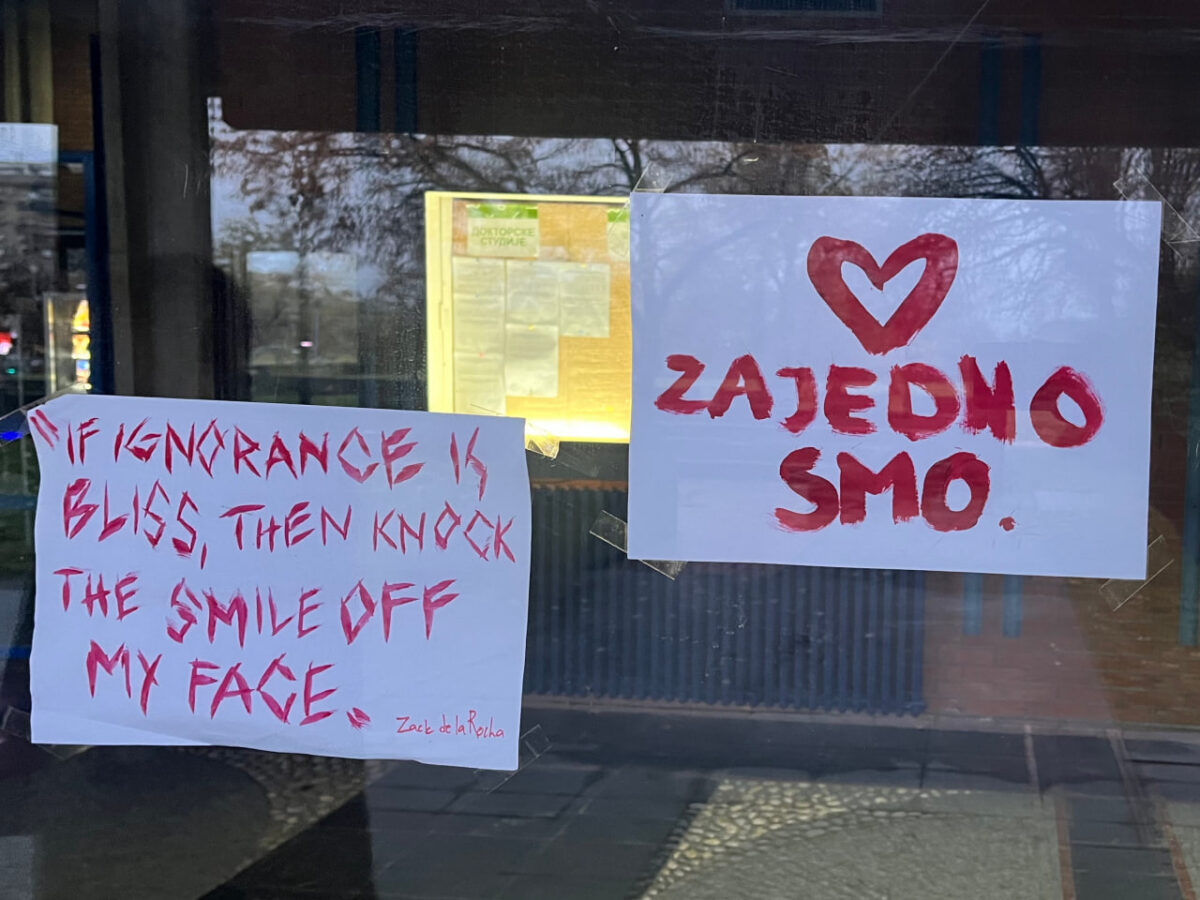 ДОКТОРСКЕ
СТУДИЈЕ
"IF IGNORANCE IS
BLISS, THEN KNOCK
THE SMILE OFF
MY FACE.
Zack de la Rocha
ZAJEDNO
SMO.